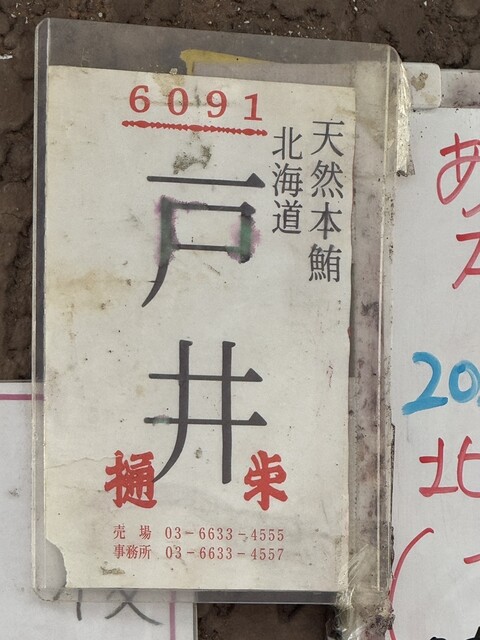 6091
天然本鮪
北海道
戸井
樋栄
売場 03-6633-4555
事務所 03-6633-4557
あ
20
北